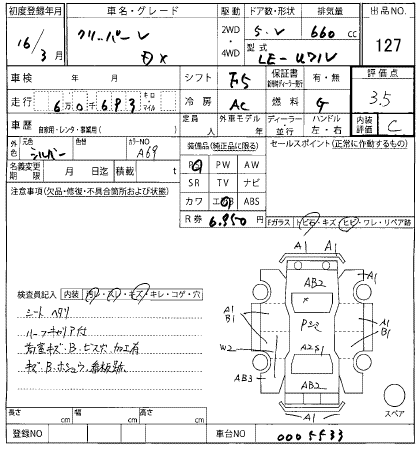 初度登録年月 車名・グレード 駆動 ドア数・形状 排気量 出品NO.
16/3月 クリッパーV DX 2WD・4WD 5.V 660cc 127
型式 LE-U71V
車検 年 月 シフト F5 保証書 有・無 評価点
走行 6万0千683 キロ・マイル 冷房 AC 燃料 G 3.5
車歴 自家用・レンタ・事業用( ) 定員 人 外車モデル/年 ディーラー・並行 ハンドル 左・右 内装評価 C
外色 元色 シルバー 色替 カラーNO A69 装備品(純正品に限る) セールスポイント(正常に作動するもの)
名義変更期限 月 日迄 積載 t PS PW AW
注意事項(欠品・修復・不具合箇所および状態) SR TV ナビ
カワ エアB ABS
R券 6.850円 Fガラス トビ石・キズ・ヒビ・ワレ・リペア跡
A1 A1
AB2 A1
検査員記入 内装 汚レ・スレ・キズ・キレ・コゲ・穴
シートヘタリ A1 B1 P A1 B1
ルーフキャリア付
荷室キズ・B・ビス穴・加工有 W2 A2S1
キズ・B・ホシュウ・看板跡 AB3 AB2 A1
A1 スペア
長さ cm 幅 cm 高さ cm
登録NO 車台NO 0005533